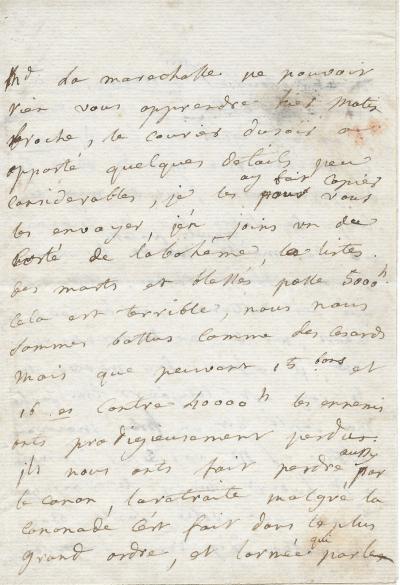 Md La marechalle ne pouvoir
rien vous apprendre hier matin
proche, le courier du soir a
apporté quelques details peu
considerables, je les ay fait copier pour vous
les envoyer, j'en joins un du
costé de la bohême, la liste
des morts et blessés passe 5000 h
cela est terrible, nous nous
sommes battus comme des cesards
mais que peuvent 15 bons et
16 es contre 40000 h les ennemis
onts prodigieusement perdus.
ils nous onts fait perdre aussy par
le canon, la ratraite malgré la
cononade c'ért fait dans le plus
grand ordre, et l'armée qui parle